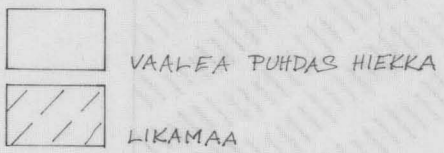 VAALEA PUHDAS HIEKKA
LIKAMAA